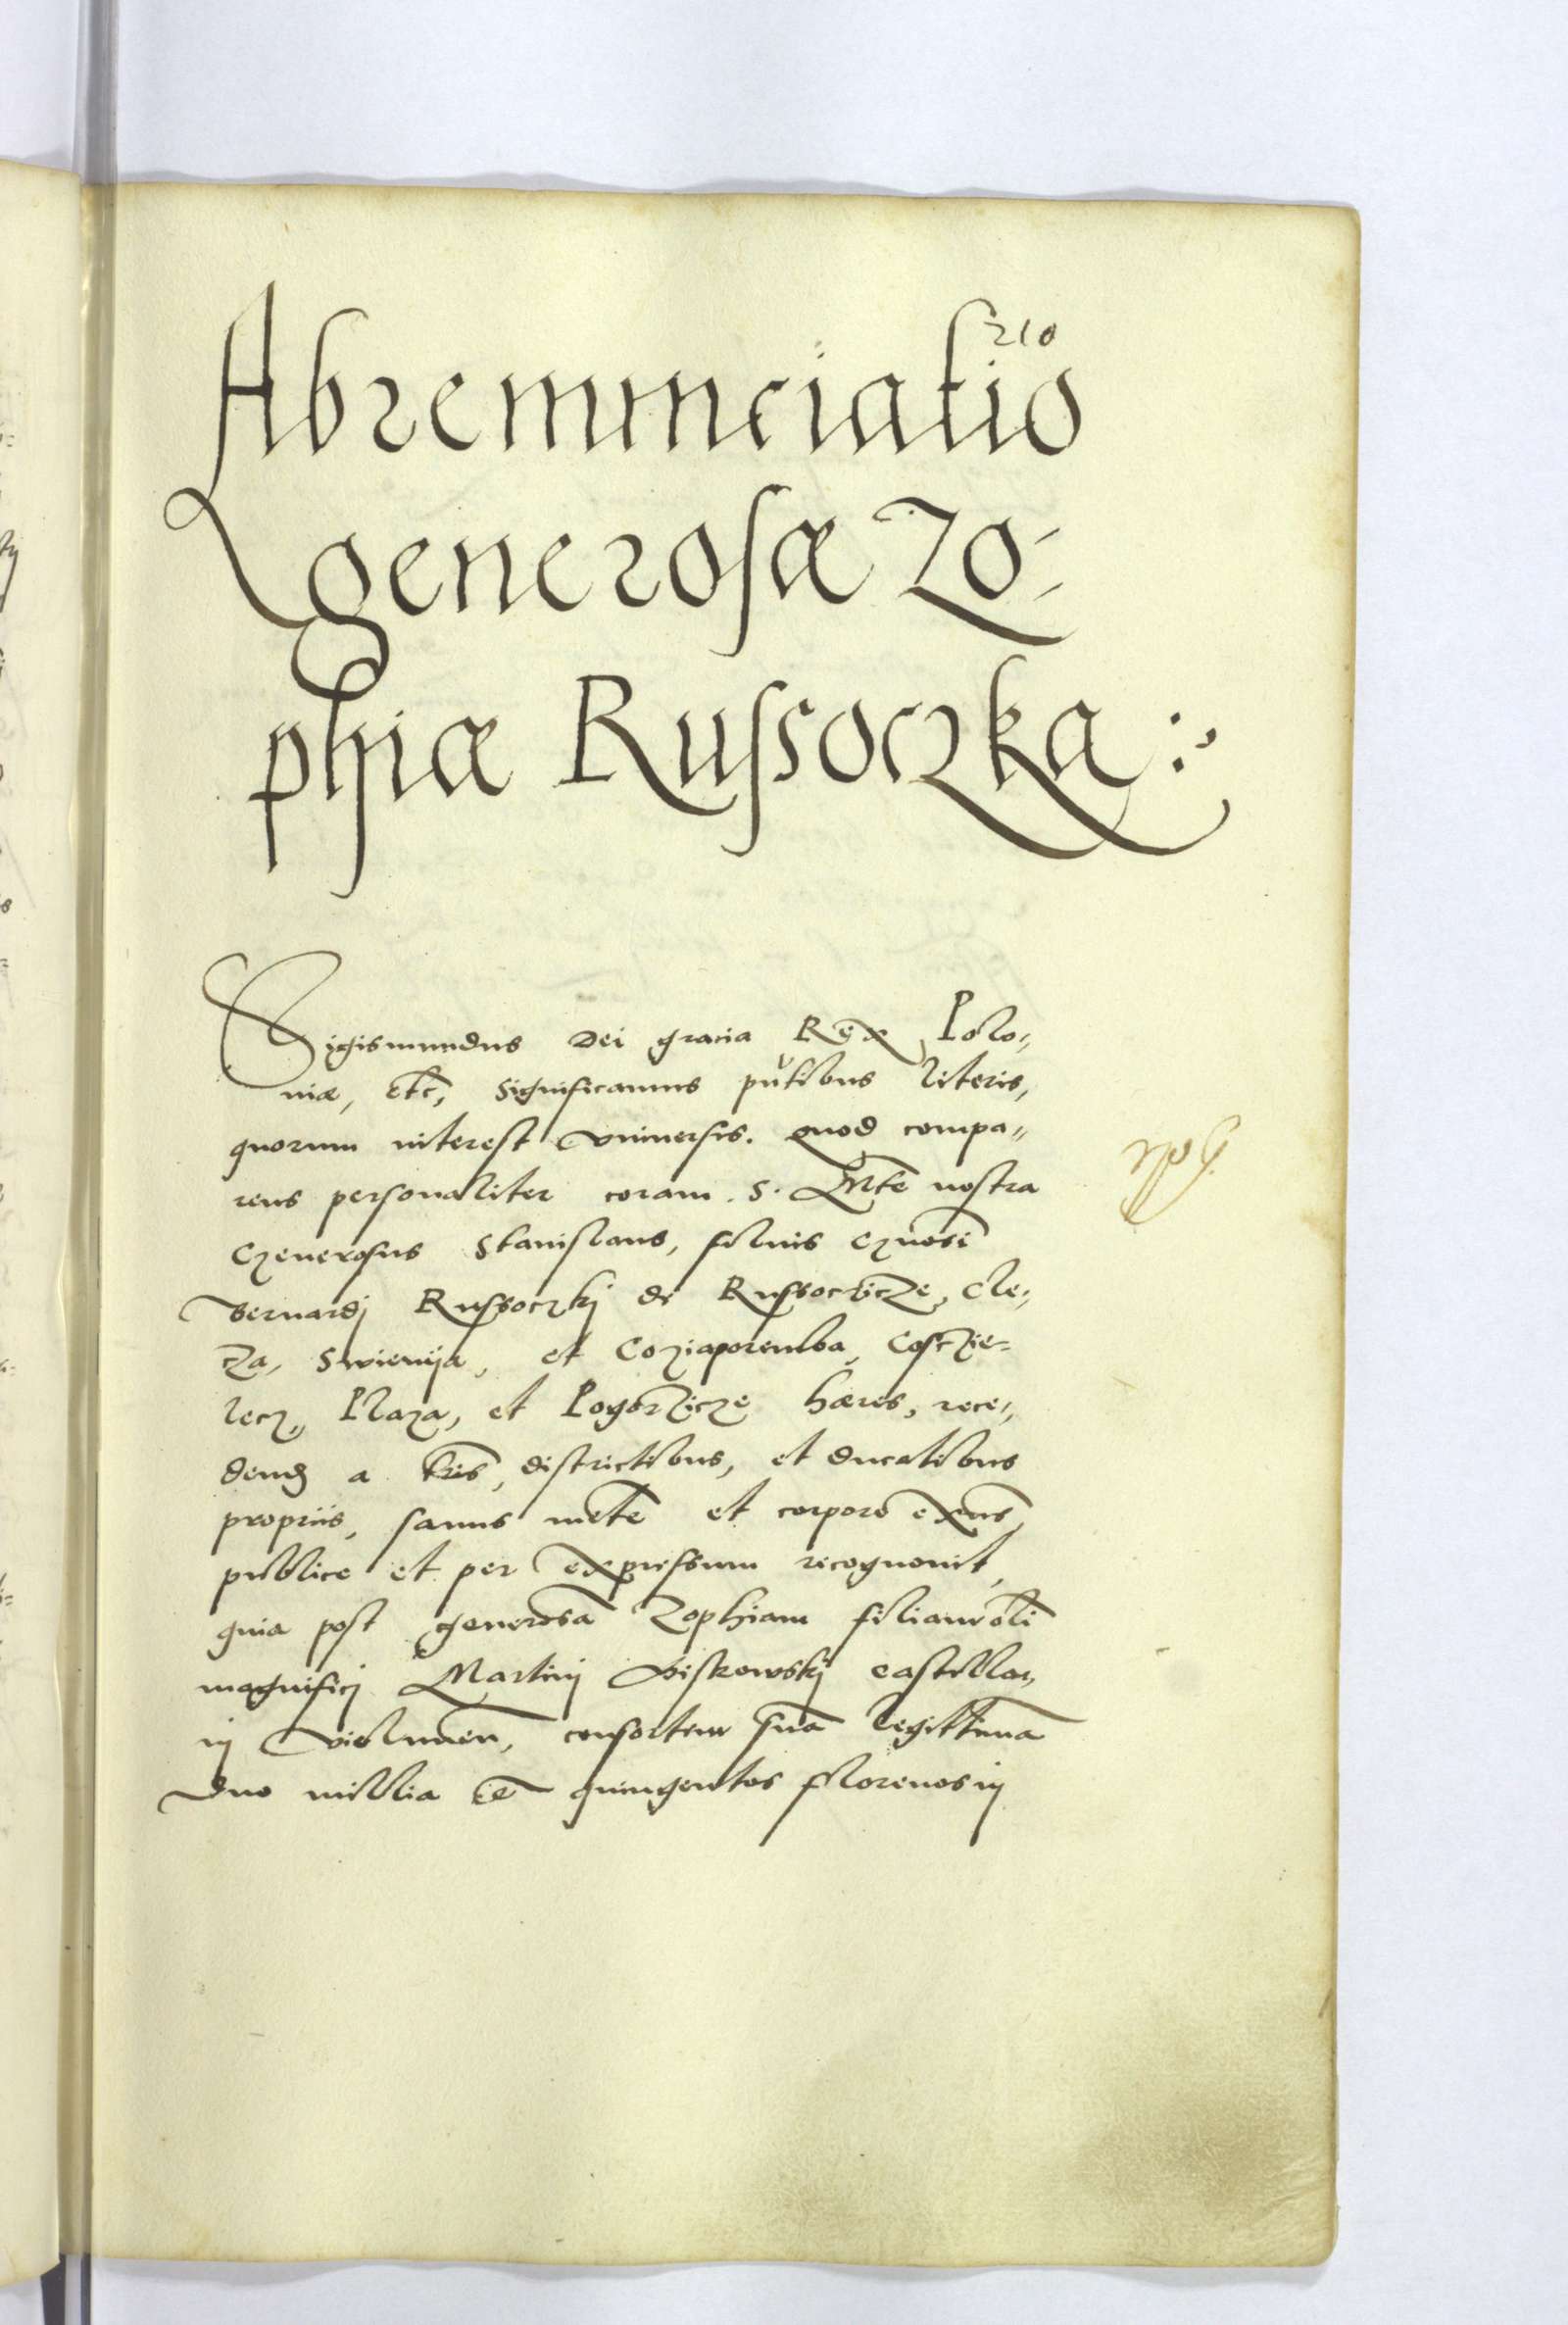 210
Abrenunciatio
generosæ Zo-
phiæ Russoczka :,
Sigismundus Dei gracia Rex Polo,,
niæ, etc, Significamus pntibus literis,
quorum interest vniuersis. Quod compa,,
rens personaliter coram S. Mte nostra
Generosus Stanislaus, filius Gnosi
Bernardj Russoczkj de Russocicze, Cle,,
cza, Swienija, et Coziaporemba, Costzie-
lecz, Plaza, et Pogorzicze hæres, rece,,
dend a tris, districtibus, et ducatibus
propriis, sanus mete et corpore exns,
publice et per expressum recognouit,
quia post generosa Zophiam filiam oli
magnificj Martinj Oistrowskj castella,,
nj Vielunen, consortem sua legittima
duo millia et quingentos florenos in